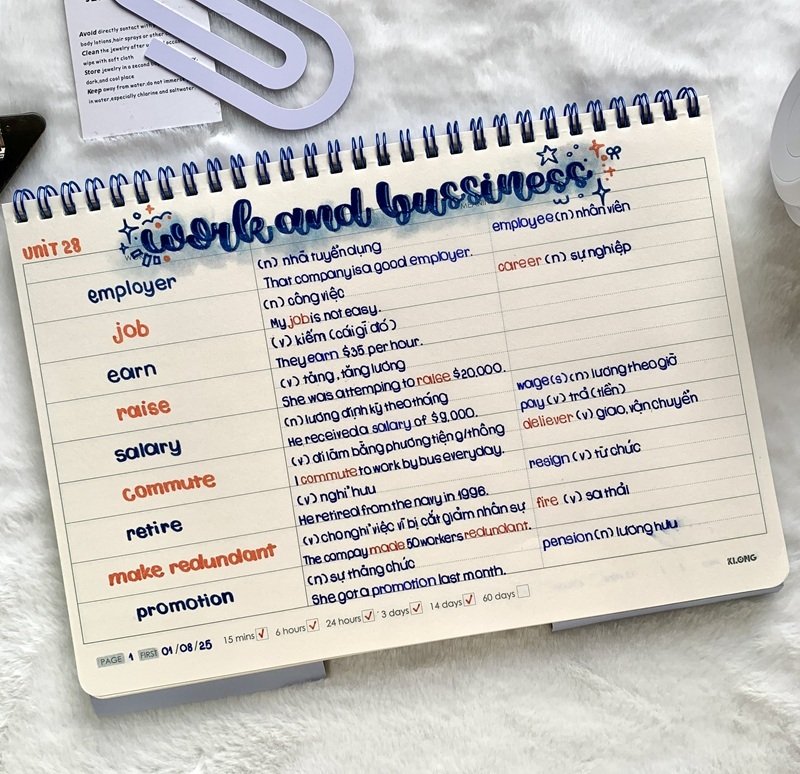 Avoid directly contact with
body lotions, hair sprays or other
Clean the jewelry after
wipe with soft cloth
Store jewelry in a second
dark, and cool place
Keep away from water: do not immerse
in water, especially chlorine and saltwater
UNIT 28
work and bussiness
employer
(n) nhà tuyển dụng
That company is a good employer.
employee (n) nhân viên
job
(n) công việc
My job is not easy.
career (n) sự nghiệp
earn
(v) kiếm (cái gì đó)
They earn $35 per hour.
raise
(v) tăng, tăng lương
She was attemping to raise $20.000.
salary
(n) lương định kỳ theo tháng
He received a salary of $9,000.
wage(s) (n) lương theo giờ
pay (v) trả (tiền)
commute
(v) đi làm bằng phương tiện g/thông
I commute to work by bus everyday.
deliever (v) giao, vận chuyển
retire
(v) nghỉ hưu
He retired from the navy in 1996.
resign (v) từ chức
make redundant
(v) cho nghỉ việc vì bị cắt giảm nhân sự
The compay made 50 workers redundant.
fire (v) sa thải
promotion
(n) sự thăng chức
She got a promotion last month.
pension (n) lương hưu
KLONG
PAGE 1 FIRST 01/08/25 15 mins 6 hours 24 hours 3 days 14 days 60 days